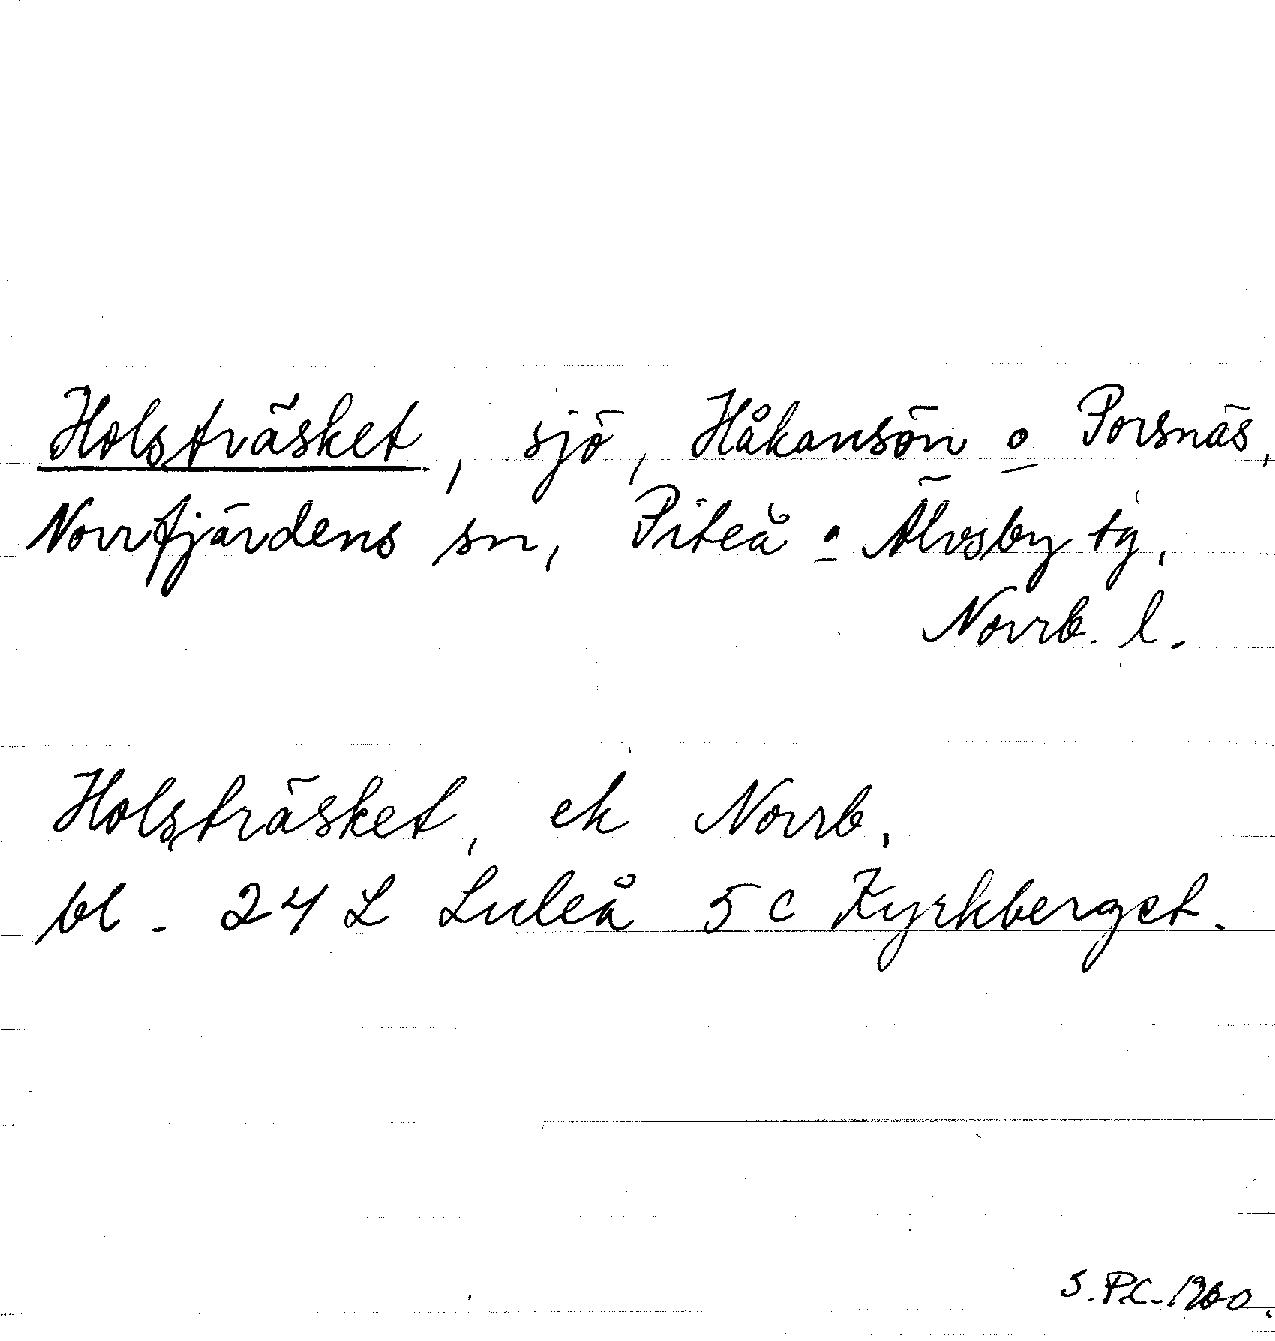 Holsträsket, sjö, Håkansön o Porsnäs,
Norrfjärdens sn, Piteå o Älvsby tg,
Norrb. l.
Holsträsket, ek Norrb.
bl. 24 L Luleå 5 c Kyrkberget.
S.P.C. 1960.